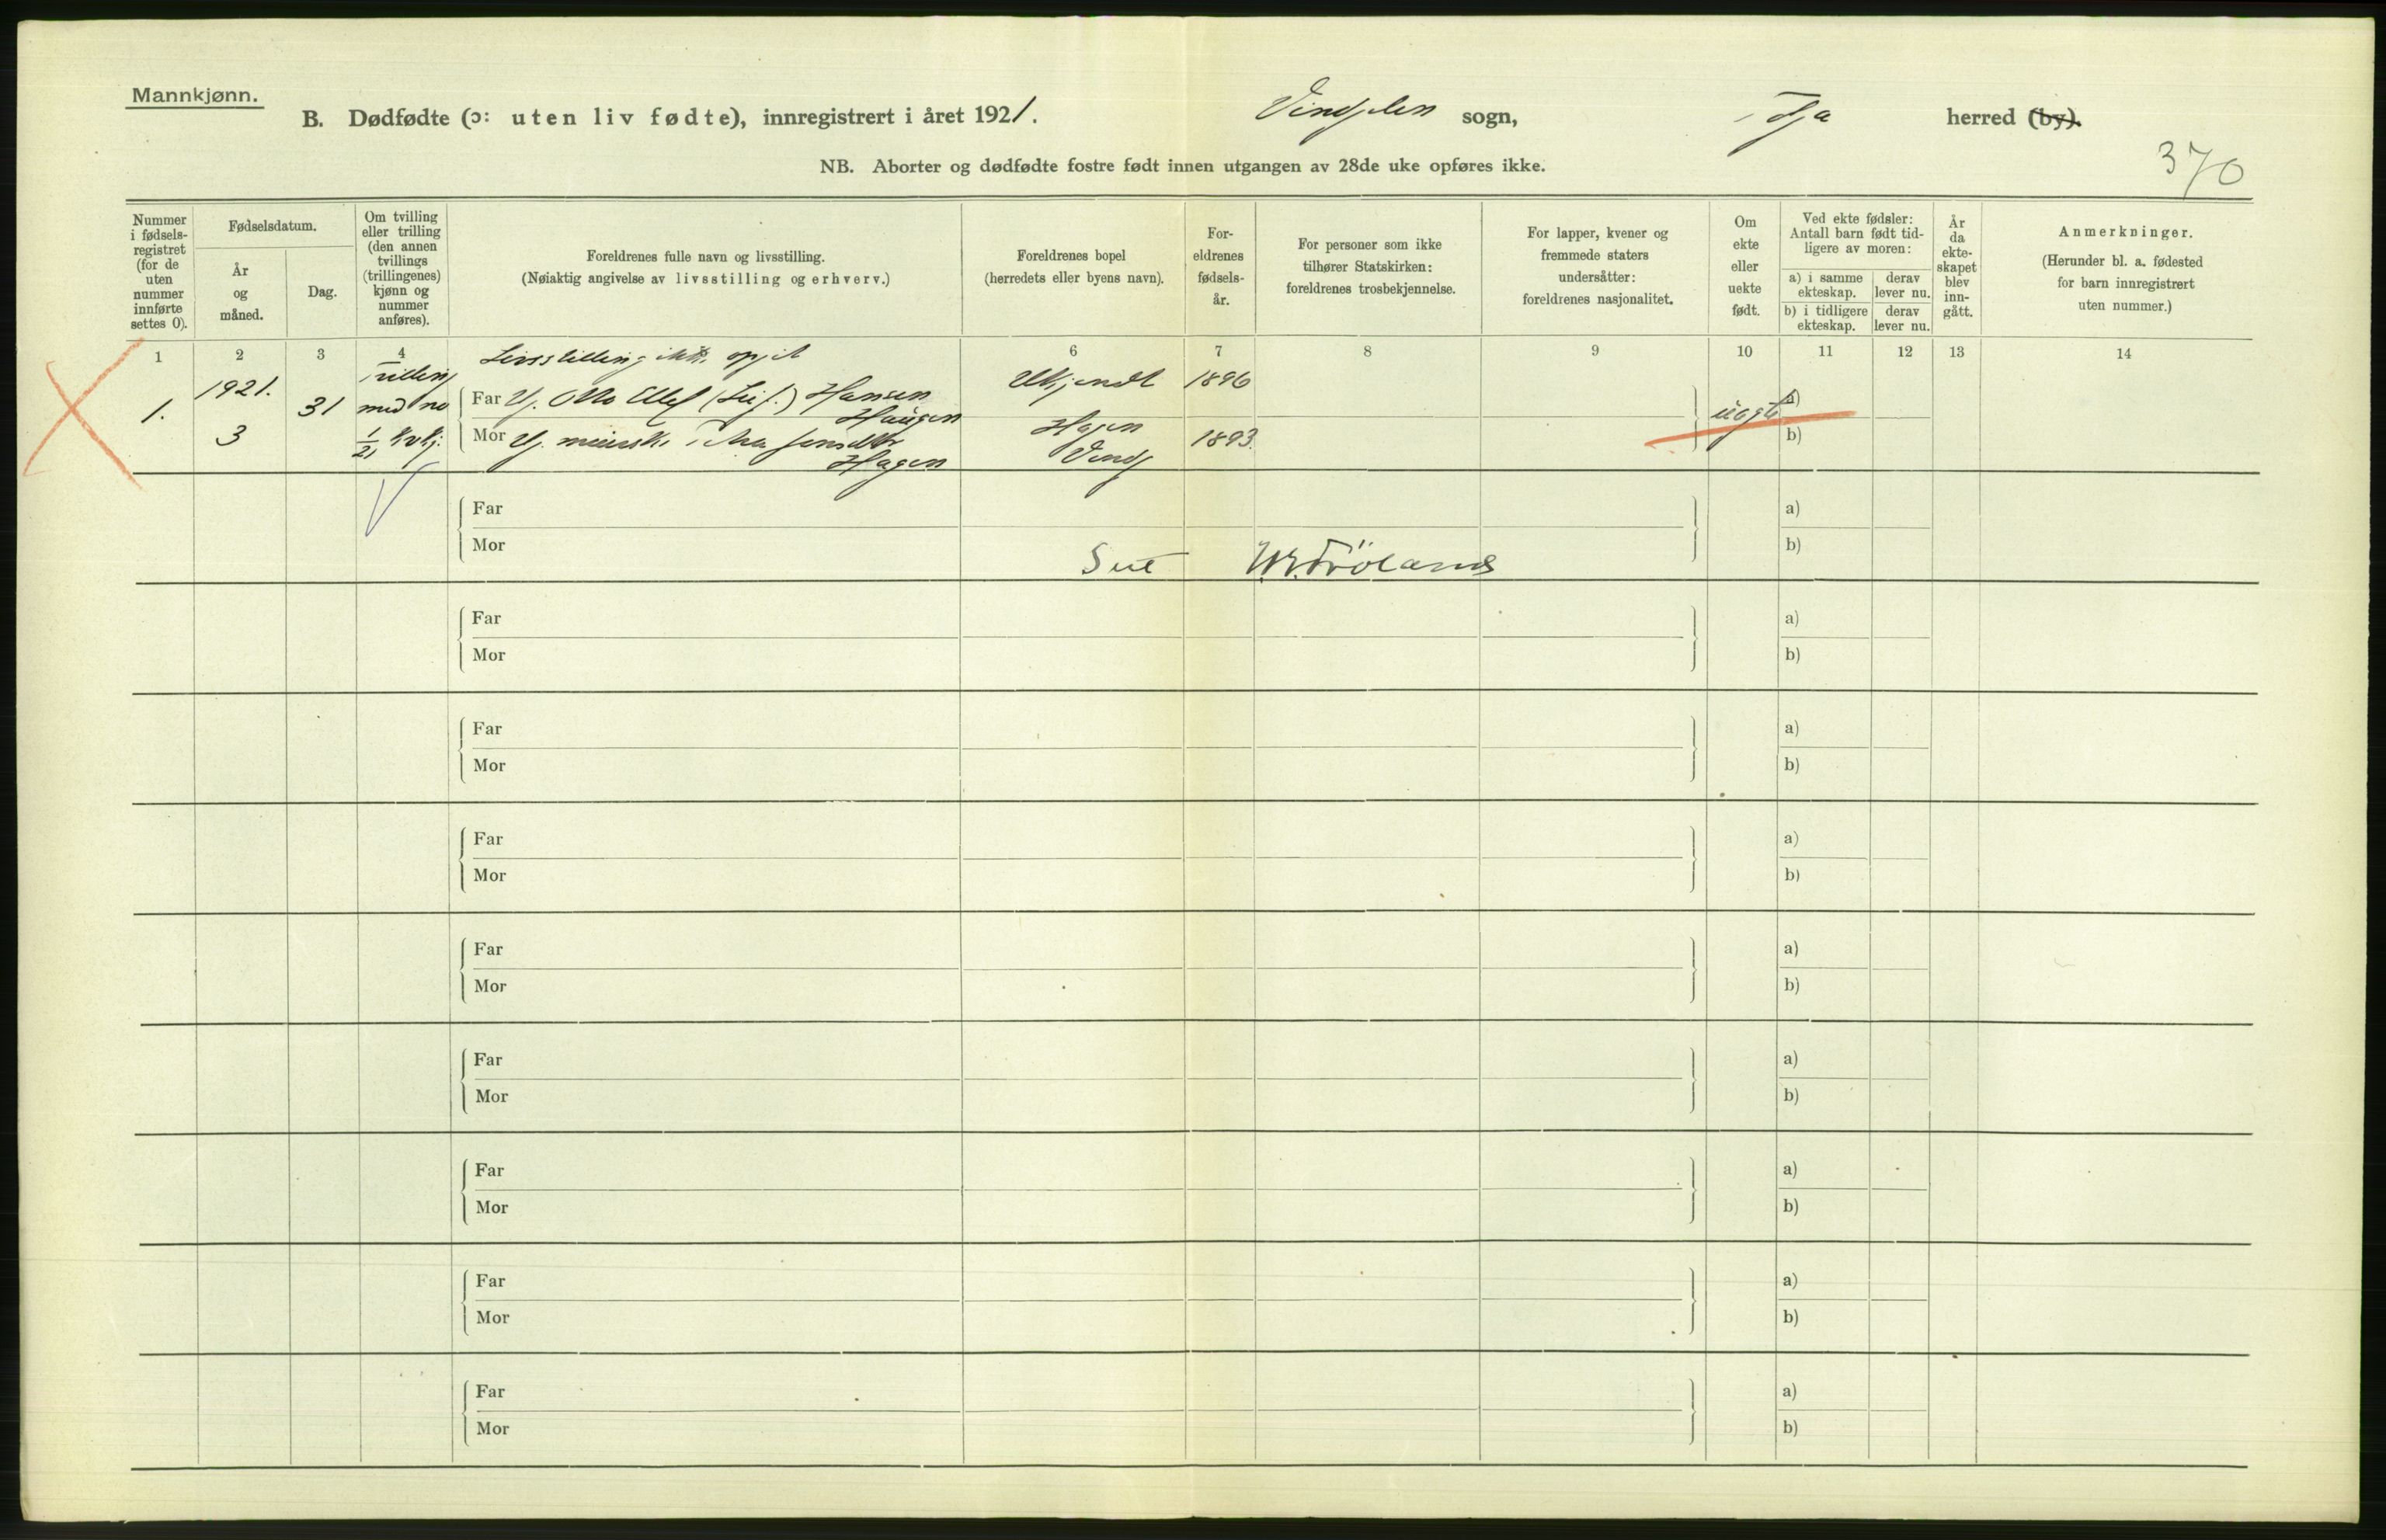 Mannkjønn.
B. Dødfødte (ɔ: uten liv fødte), innregistrert i året 1921. Vingelen sogn, Tolga herred (by).
NB. Aborter og dødfødte fostre født innen utgangen av 28de uke opføres ikke.
370
Nummer i fødsels-registret (for de uten nummer innførte settes 0).
Fødselsdatum.
År og måned.
Dag.
Om tvilling eller trilling (den annen tvillings (trillingenes) kjønn og nummer anføres).
Foreldrenes fulle navn og livsstilling.
(Nøiaktig angivelse av livsstilling og erhverv.)
Foreldrenes bopel
(herredets eller byens navn).
For-eldrenes fødsels-år.
For personer som ikke tilhører Statskirken: foreldrenes trosbekjennelse.
For lapper, kvener og fremmede staters undersåtter: foreldrenes nasjonalitet.
Om ekte eller uekte født.
Ved ekte fødsler: Antall barn født tid-ligere av moren:
a) i samme ekteskap.
derav lever nu.
b) i tidligere ekteskap.
derav lever nu.
År da ekte-skapet blev inn-gått.
Anmerkninger.
(Herunder bl. a. fødested for barn innregistrert uten nummer.)
1 2 3 4 6 7 8 9 10 11 12 13 14
Livsstilling ikke opgit
1. 1921. 3 31
Tvilling med no 1/21 kvkj.
Far Ug. Otto Hansen Haugen
Ukjendt 1896
uegte a)
Mor Ug. Hagen
Hagen Ving 1893.
b)
Far a)
Mor b)
Far a)
Mor b)
Far a)
Mor b)
Far a)
Mor b)
Far a)
Mor b)
Far a)
Mor b)
Far a)
Mor b)
Far a)
Mor b)
Far a)
Mor b)